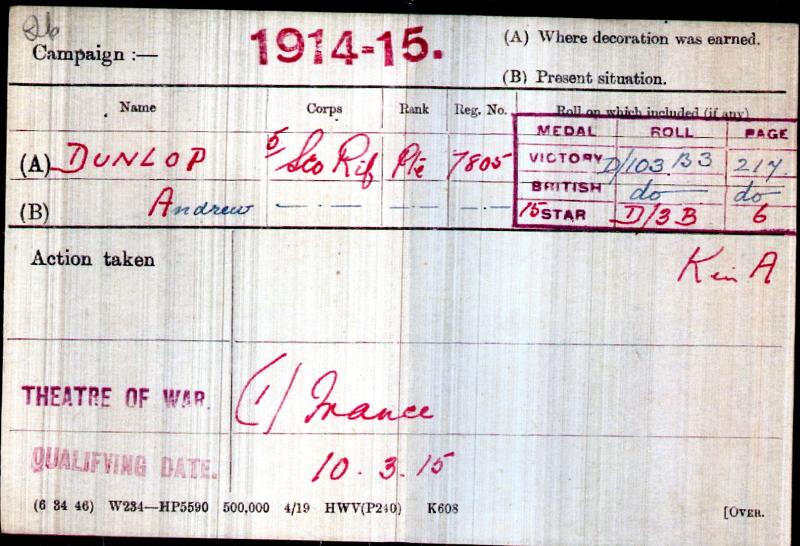 26
Campaign :— 1914-15. (A) Where decoration was earned.
(B) Present situation.
Name Corps Rank Reg. No. Roll on which included (if any)
MEDAL ROLL PAGE
(A) DUNLOP 5 Sco Rif Pte 7805 VICTORY D/103 B3 217.
(B) Andrew — · — — · — — · — BRITISH do do
15 STAR D/3 B 6
Action taken K in A
THEATRE OF WAR. (1) France
QUALIFYING DATE. 10.3.15
(6 34 46) W234—HP5590 500,000 4/19 HWV(P240) K608 [OVER.